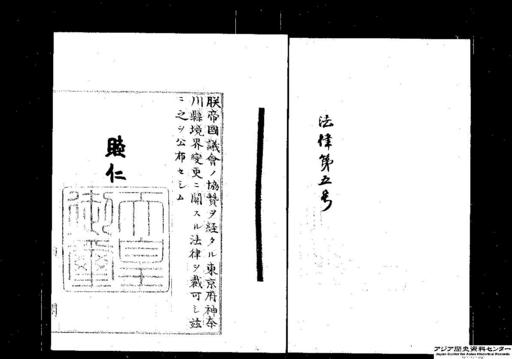 法律第五号
朕帝國議會ノ協賛ヲ経タル東京府神奈
川縣境界変更ニ關スル法律ヲ裁可シ茲
ニ之ヲ公布セシム
睦仁
天皇御璽
アジア歴史資料センター
Japan Center for Asian Historical Records